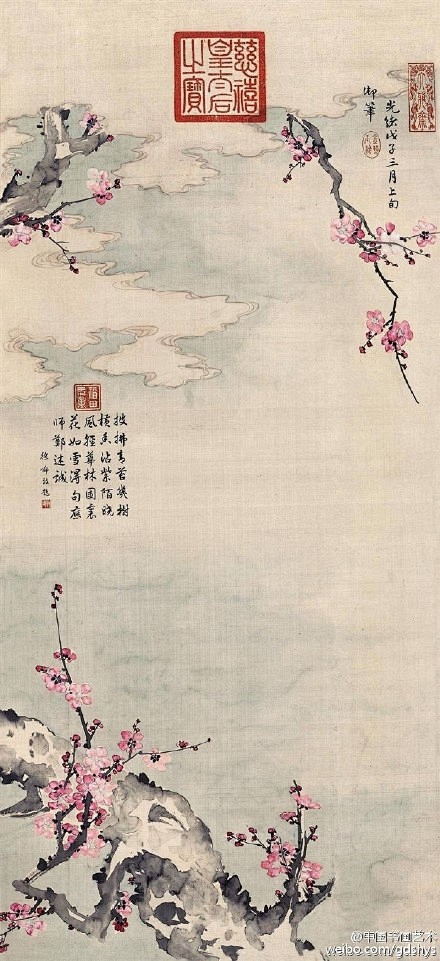 慈禧
皇太后
之寶
大雅齋
光緒戊子三月上旬
御筆
披拂青苔幾樹
橫香沾紫陌曉
風輕華林園裏
花如雪得句應
師鄭述誠
@中国字画艺术
weibo.com/gdshys